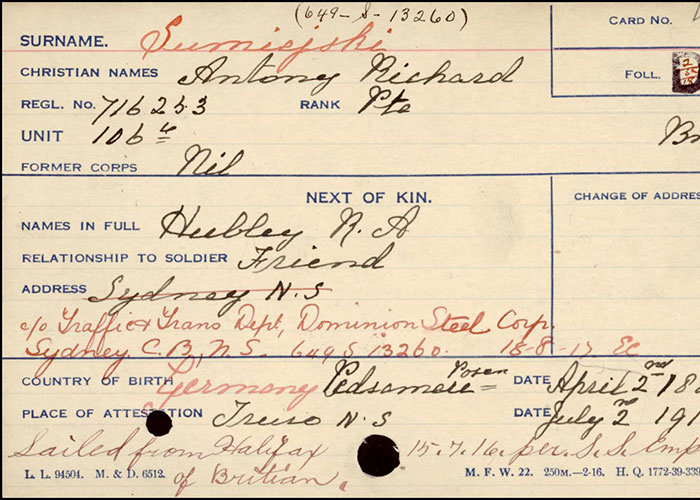 (649-S-13260)
CARD NO.
SURNAME. Sumiejski
CHRISTIAN NAMES Antony Richard
FOLL.
REGL. NO. 716253 RANK Pte
UNIT 106th
FORMER CORPS Nil
NEXT OF KIN.
CHANGE OF ADDRES
NAMES IN FULL Hubley R. A
RELATIONSHIP TO SOLDIER Friend
ADDRESS Sydney N.S
c/o Traffic & Trans Dept, Dominion Steel Corp.
Sydney C.B, N.S. 649 S 13260. 18-8-17 Ec
COUNTRY OF BIRTH Germany Posen DATE April 2nd 18
PLACE OF ATTESTATION Truro N.S DATE July 2nd 191
Sailed from Halifax 15.7.16. per. S.S. Emp
of Britian.
L. L. 94504. M. & D. 6512. M. F. W. 22. 250M.-2-16. H. Q. 1772-39-339